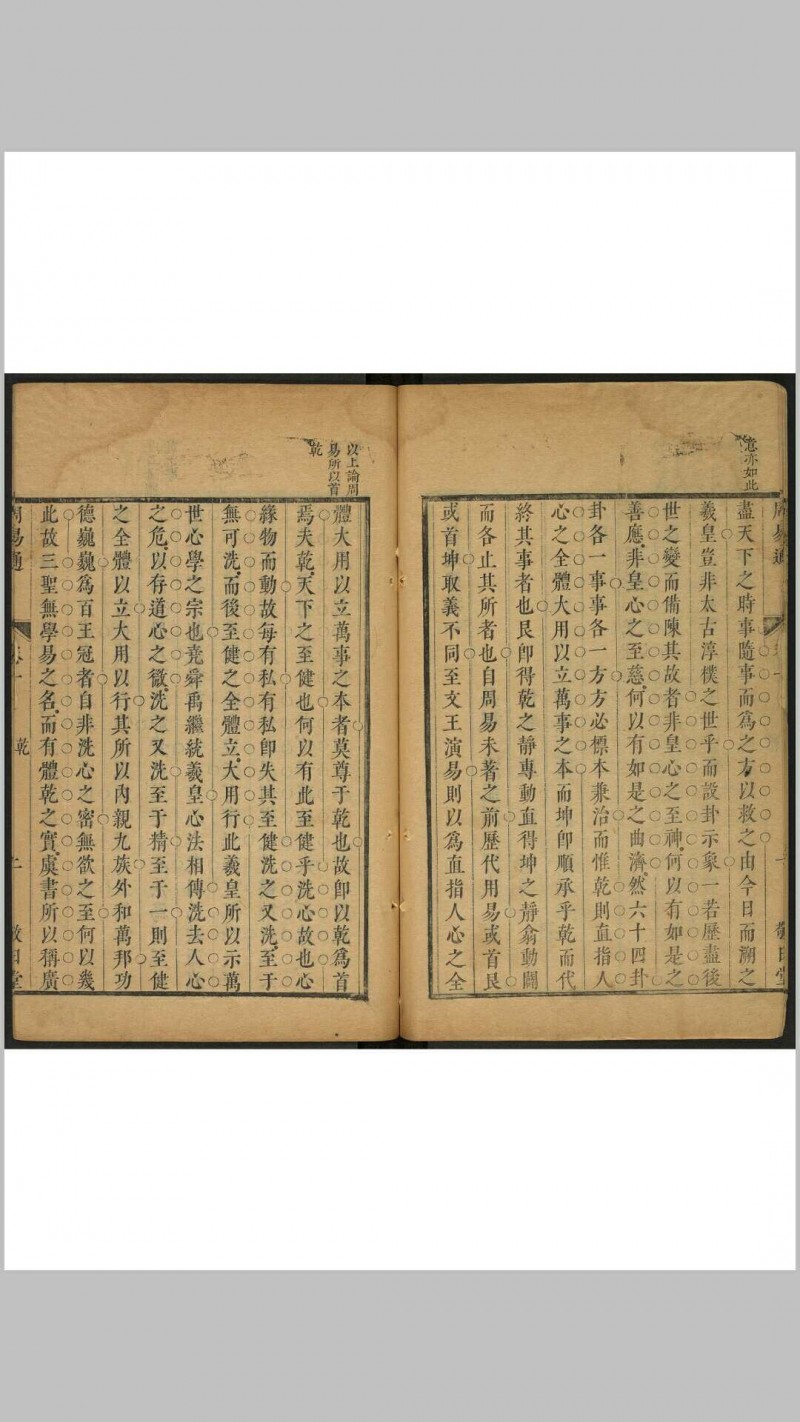 意亦如此
盡天下之時事隨事而爲之方以救之由今日而溯之
羲皇豈非太古淳樸之世乎而設卦示象一若歷盡後
世之變而備陳其故者非皇心之至神何以有如是之
善應非皇心之至慈何以有如是之曲濟然六十四卦
卦各一事事各一方方必標本兼治而惟乾則直指人
心之全體大用以立萬事之本而坤卽順承乎乾而代
終其事者也艮卽得乾之靜專動直得坤之靜翕動闢
而各止其所者也自周易未著之前歷代用易或首艮
或首坤取義不同至文王演易則以爲直指人心之全
以上論周
易所以首
乾
體大用以立萬事之本者莫尊于乾也故卽以乾爲首
焉夫乾天下之至健也何以有此至健乎洗心故也心
緣物而動故每有私有私卽失其至健洗之又洗至于
無可洗而後至健之全體立大用行此羲皇所以示萬
世心學之宗也堯舜禹繼統羲皇心法相傳洗去人心
之危以存道心之微洗之又洗至于精至于一則至健
之全體以立大用以行其所以內親九族外和萬邦功
德巍巍爲百王冠者自非洗心之密無欲之至何以幾
此故三聖無學易之名而有體乾之實虞書所以稱廣
周易通
乾